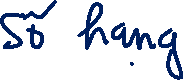 Số hạng